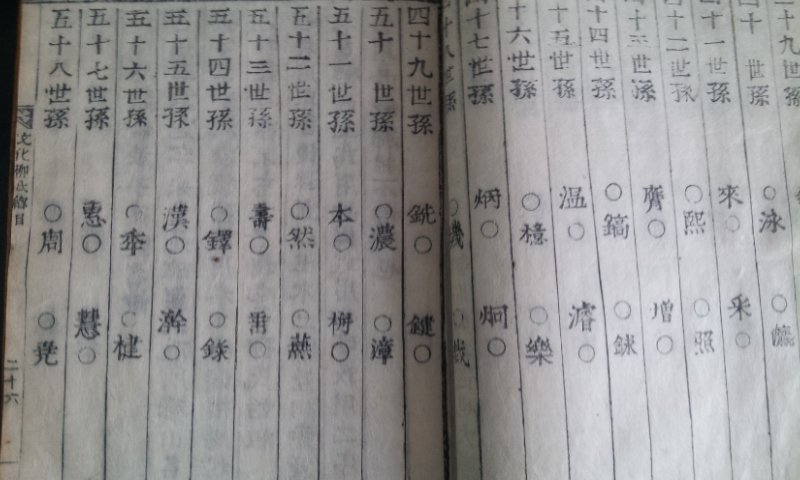 三十九世孫 ○泳
四十世孫 來○ 采○
四十一世孫 ○熙 ○照
四十二世孫 齊○ 增○
四十三世孫 ○鎬 ○銶
四十四世孫 温○ 濬○
四十五世孫 ○檍 ○樂
四十六世孫 炳○ 炯○
四十七世孫
四十八世孫
四十九世孫 銑○ 鍵○
五十世孫 ○濃 ○漳
五十一世孫 本○
五十二世孫 ○然 ○燕
五十三世孫 壽○
五十四世孫 ○鐸 ○錄
五十五世孫 漢○ 瀚○
五十六世孫 ○
五十七世孫 惠○ 慧○
五十八世孫 ○周 ○堯
文化柳氏
二十六